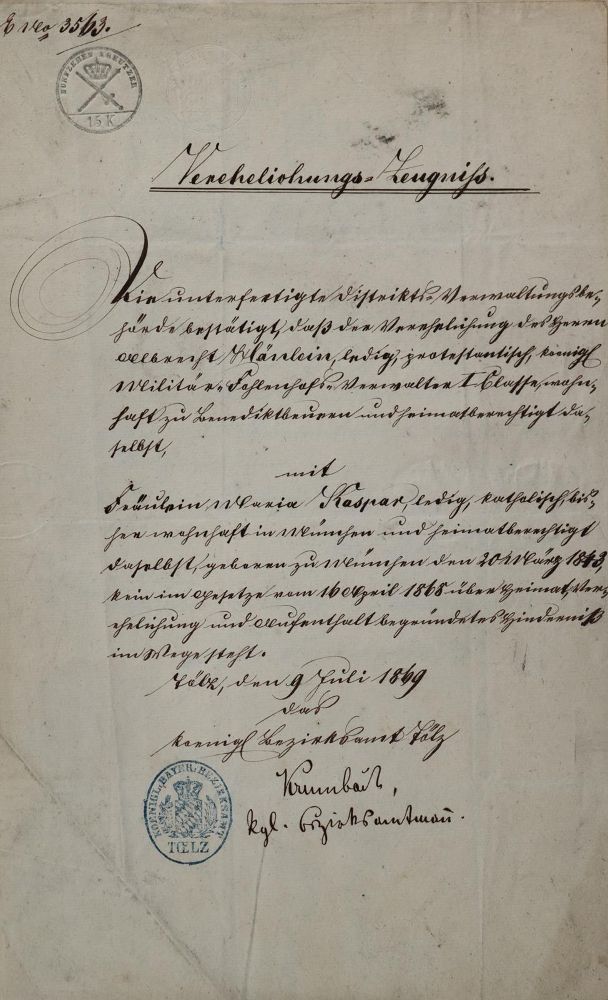 E No 3563.
FÜNFZEHN KREUTZER
15 K
Verehelichungs-Zeugniss.
Die unterfertigte Distrikts-Verwaltungsbe-
hörde bestätigt, daß der Verehelichung des Herrn
Albrecht Mänlein, ledig, protestantisch, königl
Militär-Fohlenhofs-Verwalter I Classe, wohn-
haft zu Benediktbeuern und heimatberechtigt da-
selbst,
mit
Fräulein Maria Kaspar, ledig, katholisch, bis-
her wohnhaft in München und heimatberechtigt
daselbst, geboren zu München den 20 März 1843,
kein im Gesetze vom 16 April 1868 über Heimat, Ver-
ehelichung und Aufenthalt begründetes Hinderniß
im Wege steht.
Tölz, den 9 Juli 1869
das
koenigl Bezirksamt Tölz
kgl. Bezirksamtmann.
KOENIGL. BAYER. BEZIRKSAMT
TŒLZ